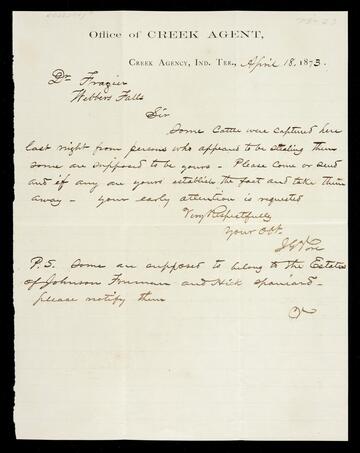 Office of CREEK AGENT,
CREEK AGENCY, IND. TER., April 18, 1873.
Dr Frazier
Webbers Falls
Sir
Some Cattle were captured here
last night from persons who appeared to be stealing them
some are supposed to be yours - Please come or send
and if any are yours establish the fact and take them
away - your early attention is requested
Very Respectfully
Your Obt.
P.S. Some are supposed to belong to the Estates
of Johnson Foreman and Nick Spaniard -
please notify them